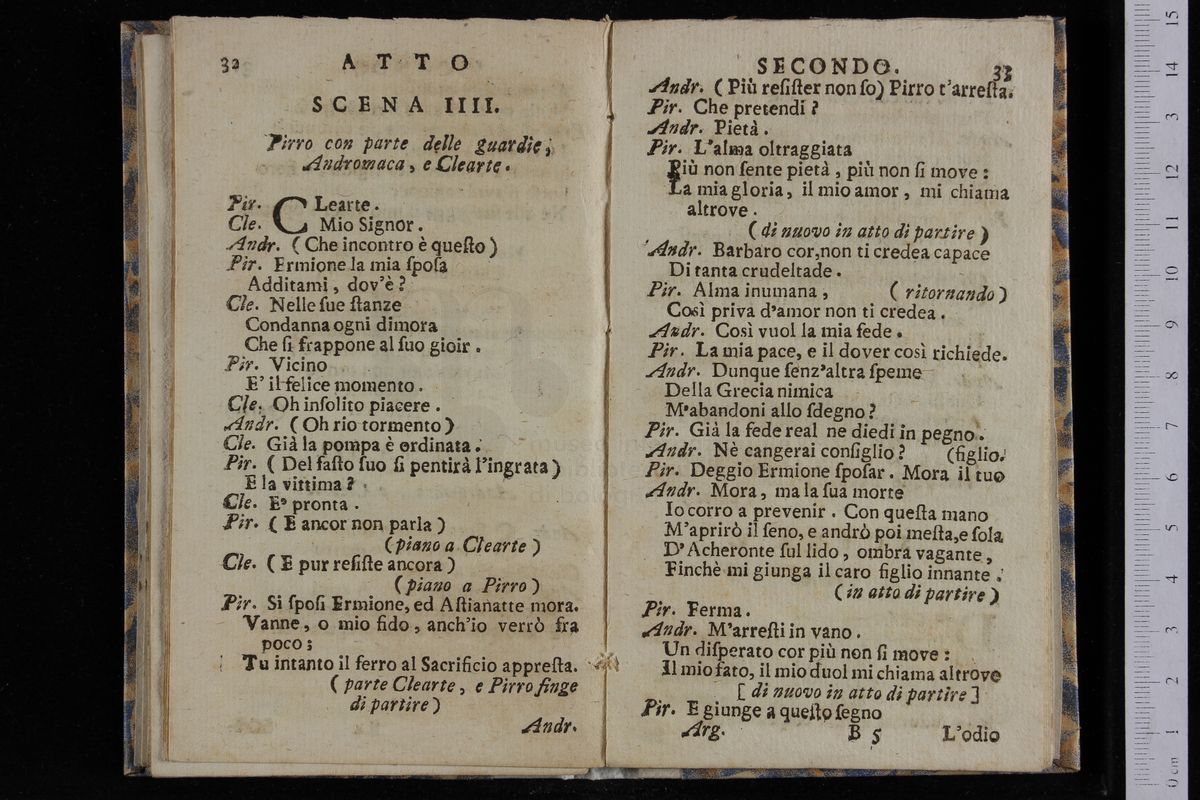 32 ATTO
SCENA IIII.
Pirro con parte delle guardie,
Andromaca, e Clearte.
Pir. CLearte.
Cle. Mio Signor.
Andr. ( Che incontro è queſto )
Pir. Ermione la mia ſpoſa
Additami, dov'è?
Cle. Nelle ſue ſtanze
Condanna ogni dimora
Che ſi frappone al ſuo gioir.
Pir. Vicino
E' il felice momento.
Cle. Oh inſolito piacere.
Andr. ( Oh rio tormento )
Cle. Già la pompa è ordinata.
Pir. ( Del faſto ſuo ſi pentirà l'ingrata )
E la vittima?
Cle. E' pronta.
Pir. ( E ancor non parla )
(piano a Clearte )
Cle. ( E pur reſiſte ancora )
(piano a Pirro )
Pir. Si ſpoſi Ermione, ed Aſtianatte mora.
Vanne, o mio fido, anch'io verrò fra
poco;
Tu intanto il ferro al Sacrificio appreſta.
( parte Clearte, e Pirro finge
di partire )
Andr.
SECONDO. 33
Andr. ( Più reſiſter non ſo) Pirro t'arreſta.
Pir. Che pretendi?
Andr. Pietà.
Pir. L'alma oltraggiata
Più non ſente pietà, più non ſi move:
La mia gloria, il mio amor, mi chiama
altrove.
( di nuovo in atto di partire )
Andr. Barbaro cor, non ti credea capace
Di tanta crudeltade.
Pir. Alma inumana, ( ritornando )
Così priva d'amor non ti credea.
Andr. Così vuol la mia fede.
Pir. La mia pace, e il dover così richiede.
Andr. Dunque ſenz'altra ſpeme
Della Grecia nimica
M'abandoni allo ſdegno?
Pir. Già la fede real ne diedi in pegno.
Andr. Nè cangerai conſiglio? (figlio.
Pir. Deggio Ermione ſpoſar. Mora il tuo
Andr. Mora, ma la ſua morte
Io corro a prevenir. Con queſta mano
M'aprirò il ſeno, e andrò poi meſta, e ſola
D'Acheronte ſul lido, ombra vagante,
Finchè mi giunga il caro figlio innante.
(in atto di partire )
Pir. Ferma.
Andr. M'arreſti in vano.
Un diſperato cor più non ſi move:
Il mio fato, il mio duol mi chiama altrove
[ di nuovo in atto di partire ]
Pir. E giunge a queſto ſegno
Arg. B 5 L'odio
0 cm 1 2 3 4 5 6 7 8 9 10 11 12 13 14 15